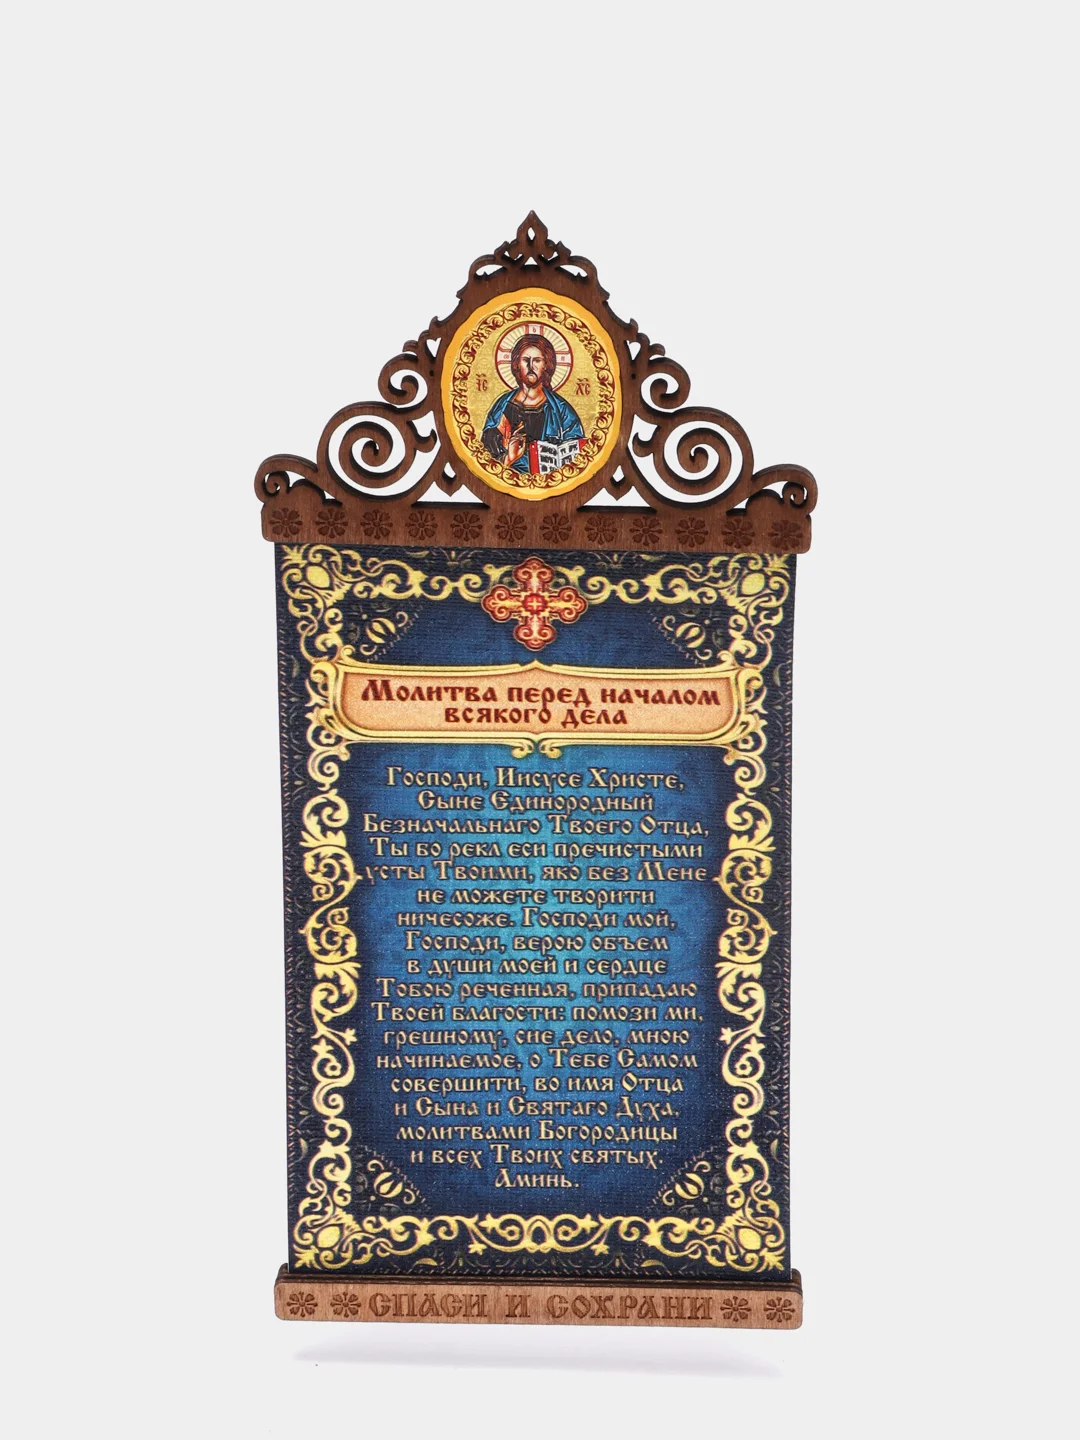 IC XC
Молитва перед началом
всякого дела
Господи, Иисусе Христе,
Сыне Единородный
Безначальнаго Твоего Отца,
Ты бо рекл еси пречистыми
усты Твоими, яко без Мене
не можете творити
ничесоже. Господи мой,
Господи, верою объем
в души моей и сердце
Тобою реченная, припадаю
Твоей благости: помози ми,
грешному, сие дело, мною
начинаемое, о Тебе Самом
совершити, во имя Отца
и Сына и Святаго Духа,
молитвами Богородицы
и всех Твоих святых.
Аминь.
СПАСИ И СОХРАНИ